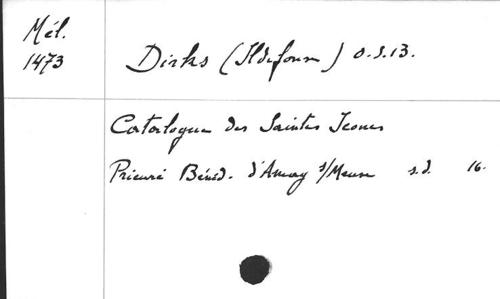 Mél.
1473
Dirks (Ildefonse) O.S.B.
Catalogue des Saintes Icones
Prieuré Bénéd. d'Amay s/Meuse s.d. 16.